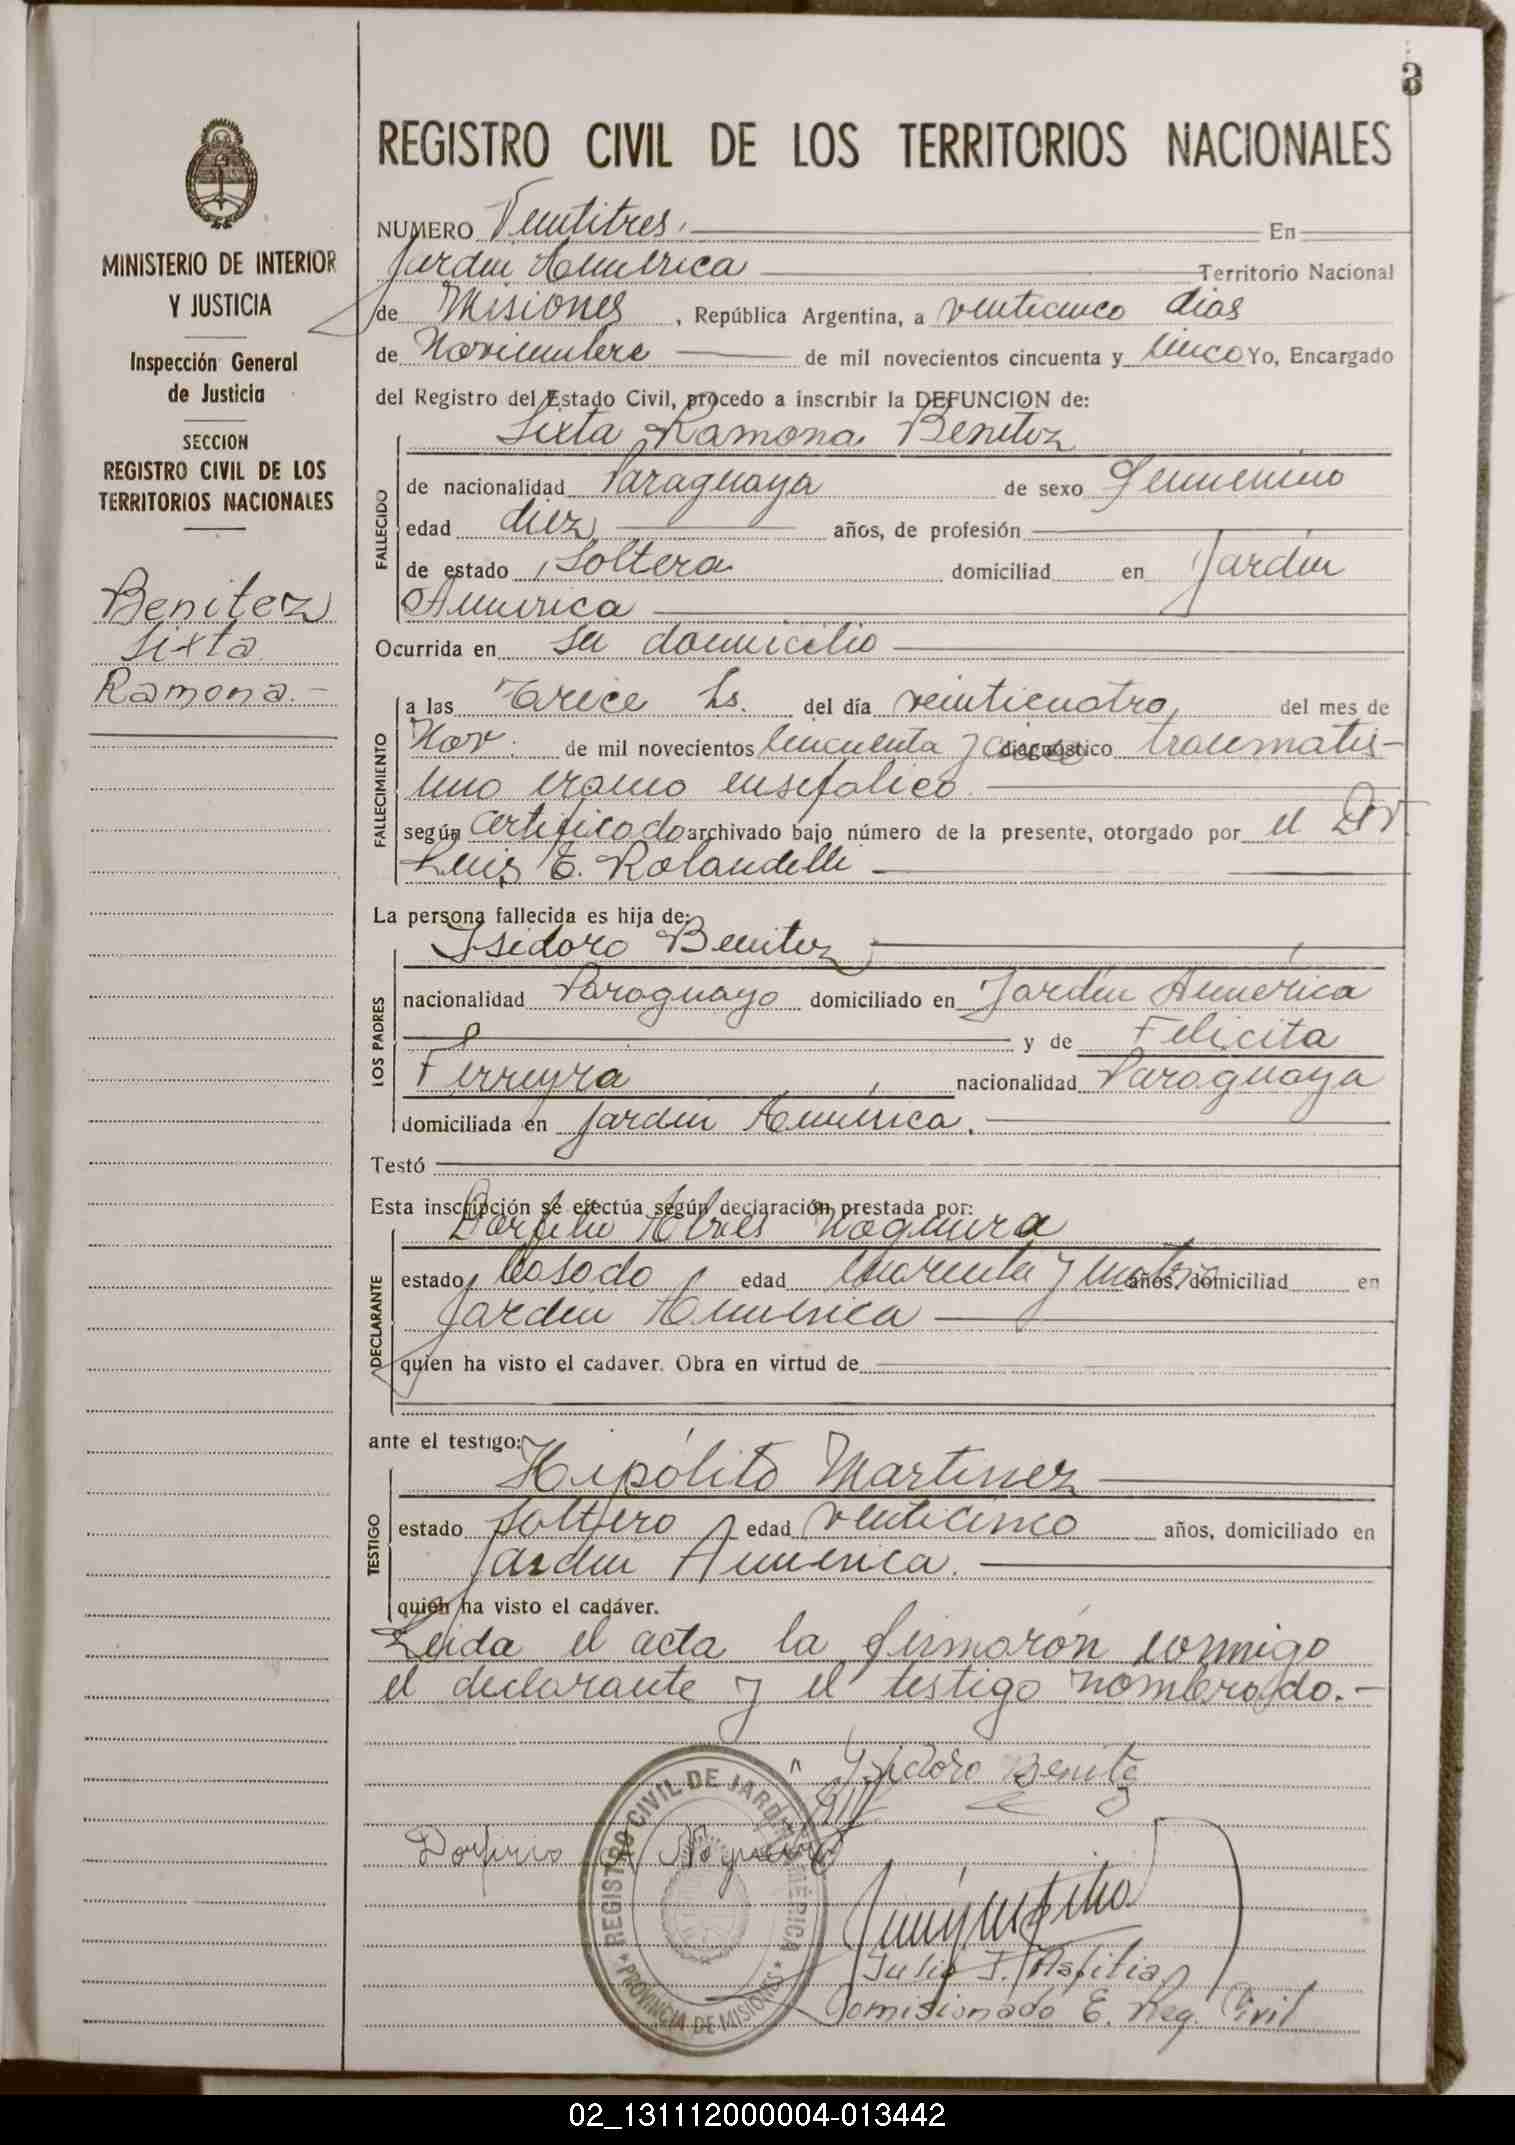 8
REGISTRO CIVIL DE LOS TERRITORIOS NACIONALES
MINISTERIO DE INTERIOR
Y JUSTICIA
Inspección General
de Justicia
SECCION
REGISTRO CIVIL DE LOS
TERRITORIOS NACIONALES
Benitez
Sixta
Ramona.-
NUMERO Veintitres. En
Jardin America Territorio Nacional
de Misiones, República Argentina, a venticinco dias
de Noviembre de mil novecientos cincuenta y cinco Yo, Encargado
del Registro del Estado Civil, procedo a inscribir la DEFUNCION de:
Sixta Ramona Benitez
FALLECIDO
de nacionalidad Paraguaya de sexo Femenino
edad diez años, de profesión
de estado Soltera domiciliad en Jardin
America
Ocurrida en su domicilio
FALLECIMIENTO
a las Trece hs. del día veinticuatro del mes de
Nov. de mil novecientos cincuenta y cinco diagnóstico traumatis-
mo craneo ensefalico
según certificado archivado bajo número de la presente, otorgado por el Dr.
Luis E. Rolandelli
La persona fallecida es hija de:
Isidoro Benitez
LOS PADRES
nacionalidad Paraguayo domiciliado en Jardin América
y de Felicita
Ferreyra nacionalidad Paraguaya
domiciliada en Jardin América.
Testó
Esta inscripción se efectúa según declaración prestada por:
Alves Noguera
DECLARANTE
estado Casado edad cuarenta y años, domiciliad en
Jardin America
quien ha visto el cadaver. Obra en virtud de
ante el testigo:
Hipólito Martinez
TESTIGO
estado soltero edad venticinco años, domiciliado en
Jardin America.
quien ha visto el cadáver.
Leida el acta la firmarón conmigo
el declarante y el testigo nombrado.-
Isidoro Benitez
Porfirio A Noguera
REGISTRO CIVIL DE JARDIN AMÉRICA
PROVINCIA DE MISIONES
Julio J.
Comisionado E. Reg. Civil
02_131112000004-013442